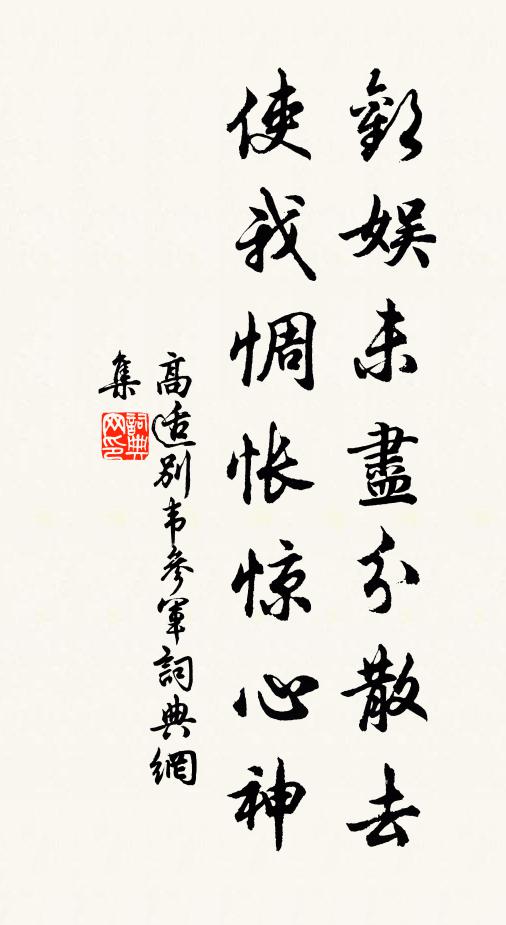 歡娛未盡分散去
使我惆悵惊心神
高适別韦參軍詞典網
集
詞典网印